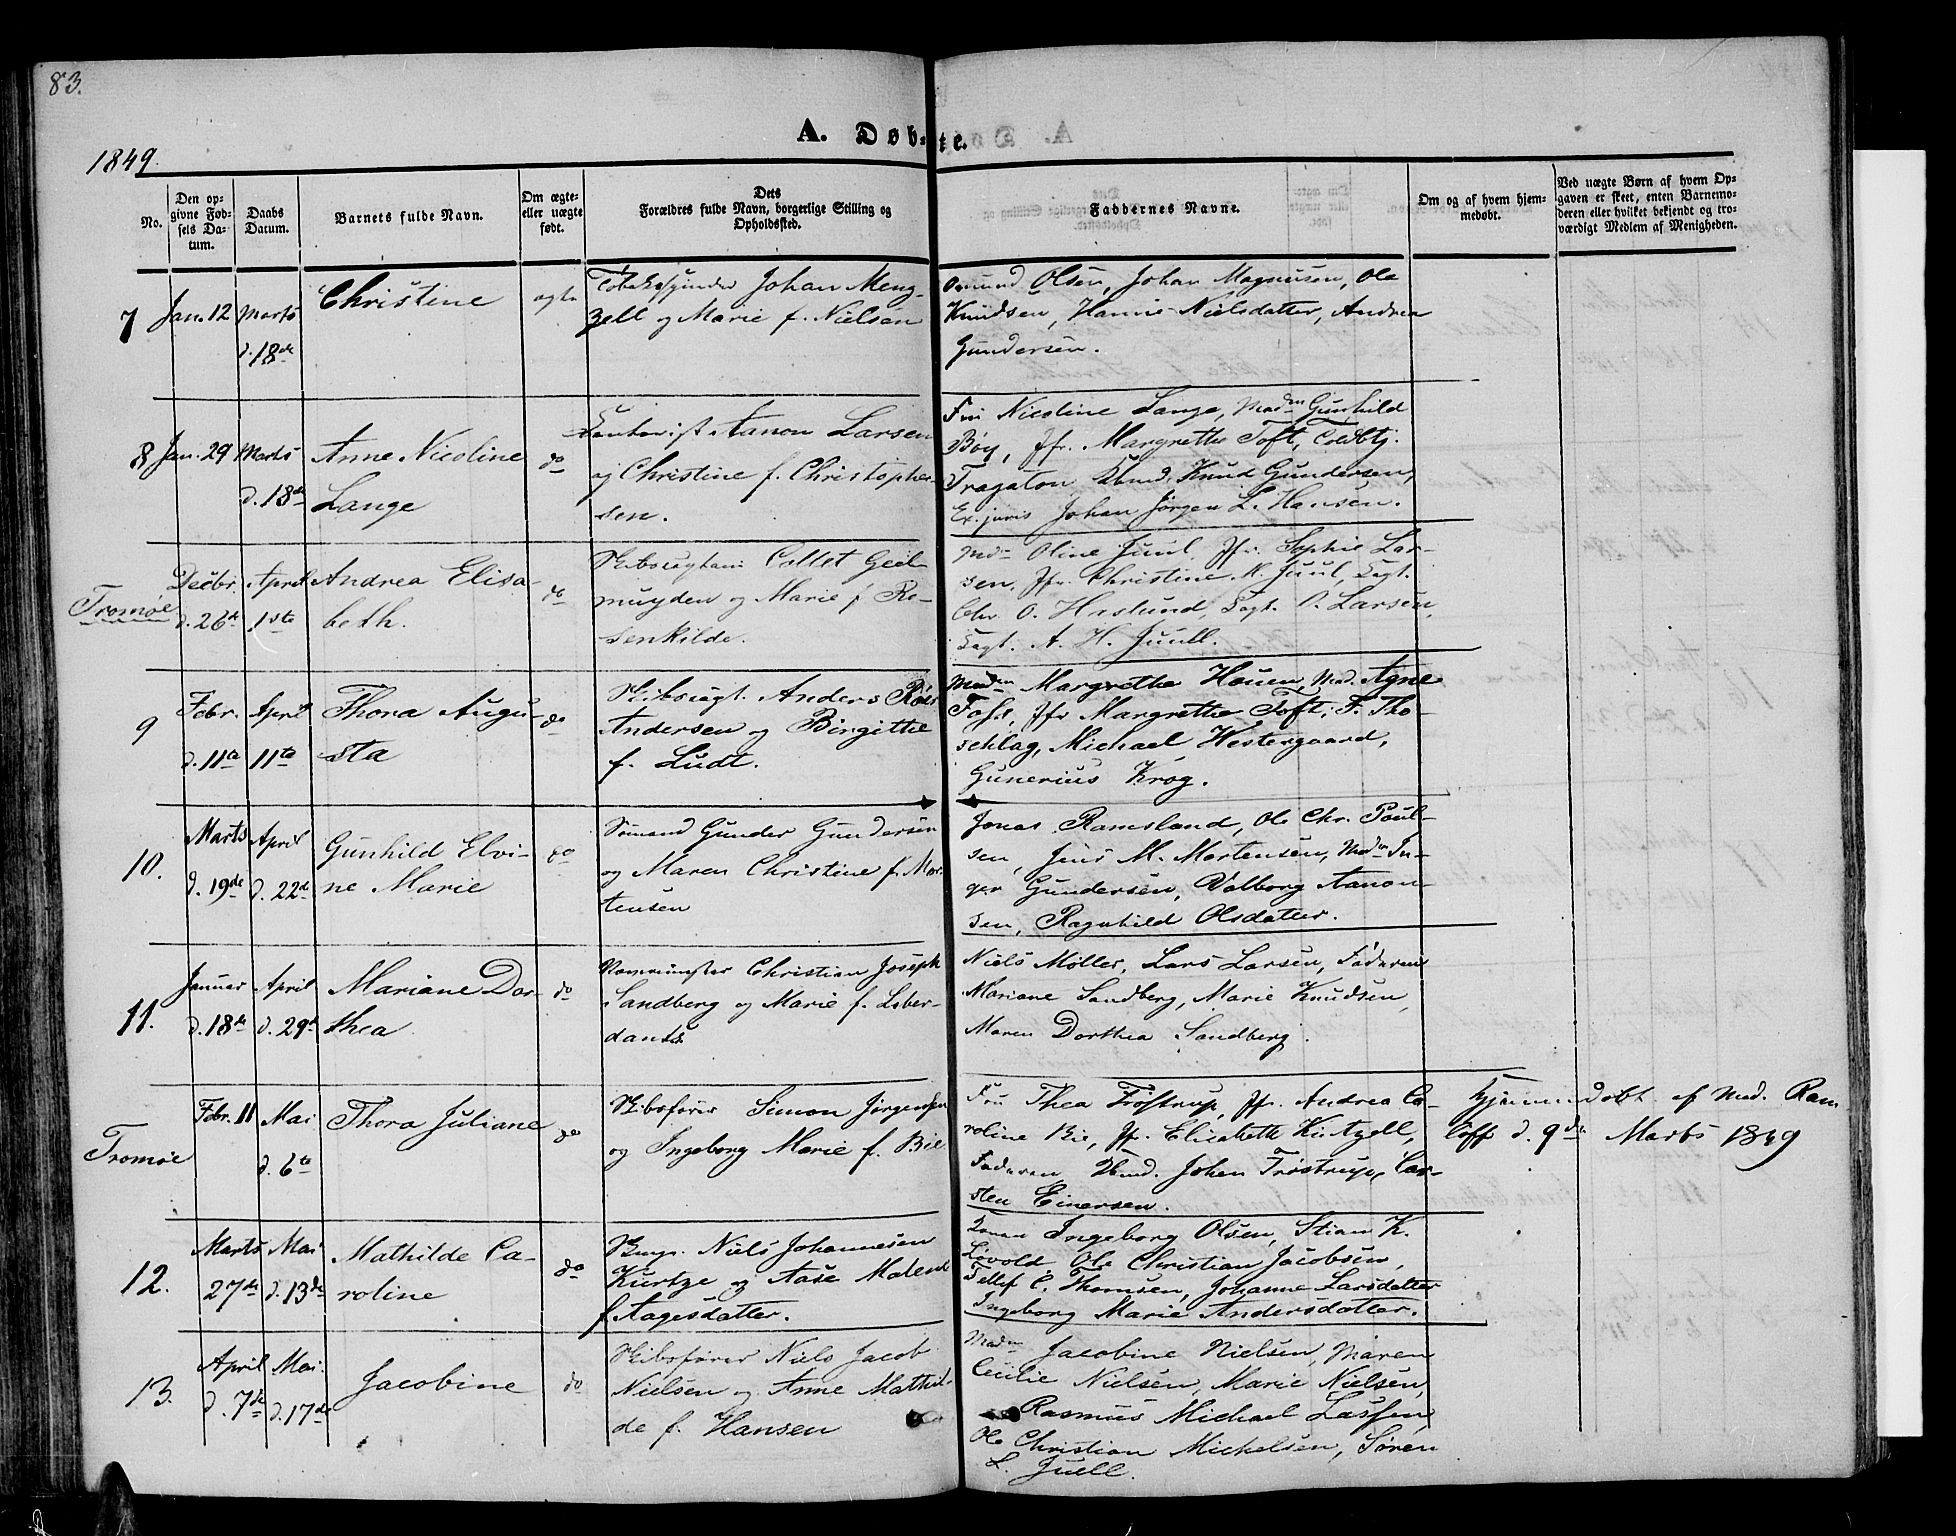 83.
A. Døbte.
1849.
No.
Den opgivne Fødsels Datum.
Daabs Datum.
Barnets fulde Navn.
Om ægte- eller uægte født.
Dets Forældres fulde Navn, borgerlige Stilling og Opholdssted.
Faddernes Navne.
Om og af hvem hjemmedøbt.
Ved uægte Børn af hvem Opgaven er skeet, enten Barnemoderen eller hvilket bekjendt og troværdigt Medlem af Menigheden.
7
Jan. 12
Marts
d. 18de
Christine
ægte
Johan Meng-
zell og Marie f. Nielsen
Osmund Olsen, Johan Magnusen, Ole
Knudsen, Hanne Nielsdatter, Andrea
Gundersen.
8
Jan. 29
Marts
d. 18de
Anne Nicoline
Lange
do
Aanon Larsen
og Christine f. Christopher-
sen.
Fru Nicoline Lange, Madm Gunhild
Bøy, Jfr. Margrethe Toft, Toldbtj.
Tragaton Kbmd. Knud Gundersen,
Ex. juris Johan Jørgen L. Hansen.
Tromøe
Decbr.
d. 26de
April
1ste
Andrea Elisa-
beth.
do
Skibscaptain Collet Geel-
muyden og Marie f. Ro-
senkilde.
Mdm Oline Juul, Jfr. Sophie Lar-
sen, Jfr. Christine M. Juul, Capt.
Chr. O. Haslund, Capt. O. Larsen,
Capt. A. H. Juull.
9
Febr.
d. 11te
April
11te
Thora Augu-
sta
do
Skibscapt. Anders Røed
Andersen og Birgitthe
f. Ludt.
Madm Margrethe Houen, Mad. Agne
Jfr Margrethe Toft, F. Tho-
schlag, Michael Westergaard,
Gunerius Krog.
10.
Marts
d. 19de
April
d. 22de
Gunhild Elvi-
ne Marie
do
Sømand Gunder Gundersen
og Maren Christine f. Mor-
tensen
Jonas Ramsland, Ole Chr. Poul-
sen, Jens M. Mortensen, Madm In-
ger Gundersen, Valborg Aanon-
sen, Ragnhild Olsdatter.
11.
Januar
d. 18de
April
d. 29de
Mariane Dor-
thea
do
Christian Joseph
Sandberg og Marie f. Leber-
dants
Niels Møller, Lars Larsen, Faderen
Mariane Sandberg, Marie Knudsen,
Maren Dorthea Sandberg.
Tromøe
Febr. 11
Mai
d. 6te
Thora Juliane
do
Skibsfører Simon Jørgensen
og Ingeborg Marie f. Bie
Fru Thea Trøstrup, Jfr. Andrea Ca-
roline Bie, Jfr. Elisabeth Kintzell,
Faderen Kbmd. Johan Trøstrup, Car-
sten Einersen.
Hjemmedøbt af Mad. Ram
Coff d. 9de Marts 1849
12.
Marts
27de
Mai
d. 13de
Mathilde Ca-
roline
do
Niels Johannesen
Kurtze og Aase Malene
f. Aagesdatter.
Konen Ingeborg Olsen, Stian K.
Løvold, Ole Christian Jacobsen,
Tellef C. Thomsen, Johanne Larsdatter
Ingeborg Marie Andersdatter.
13.
April
d. 7de
Mai
d. 17de
Jacobine
do
Skibsfører Niels Jacob
Nielsen og Anne Mathil-
de f. Hansen
Madm Jacobine Nielsen, Maren
Cecilie Nielsen, Marie Nielsen,
Rasmus Michael Lassen,
Ole Christian Michelsen, Søren
L. Juell.